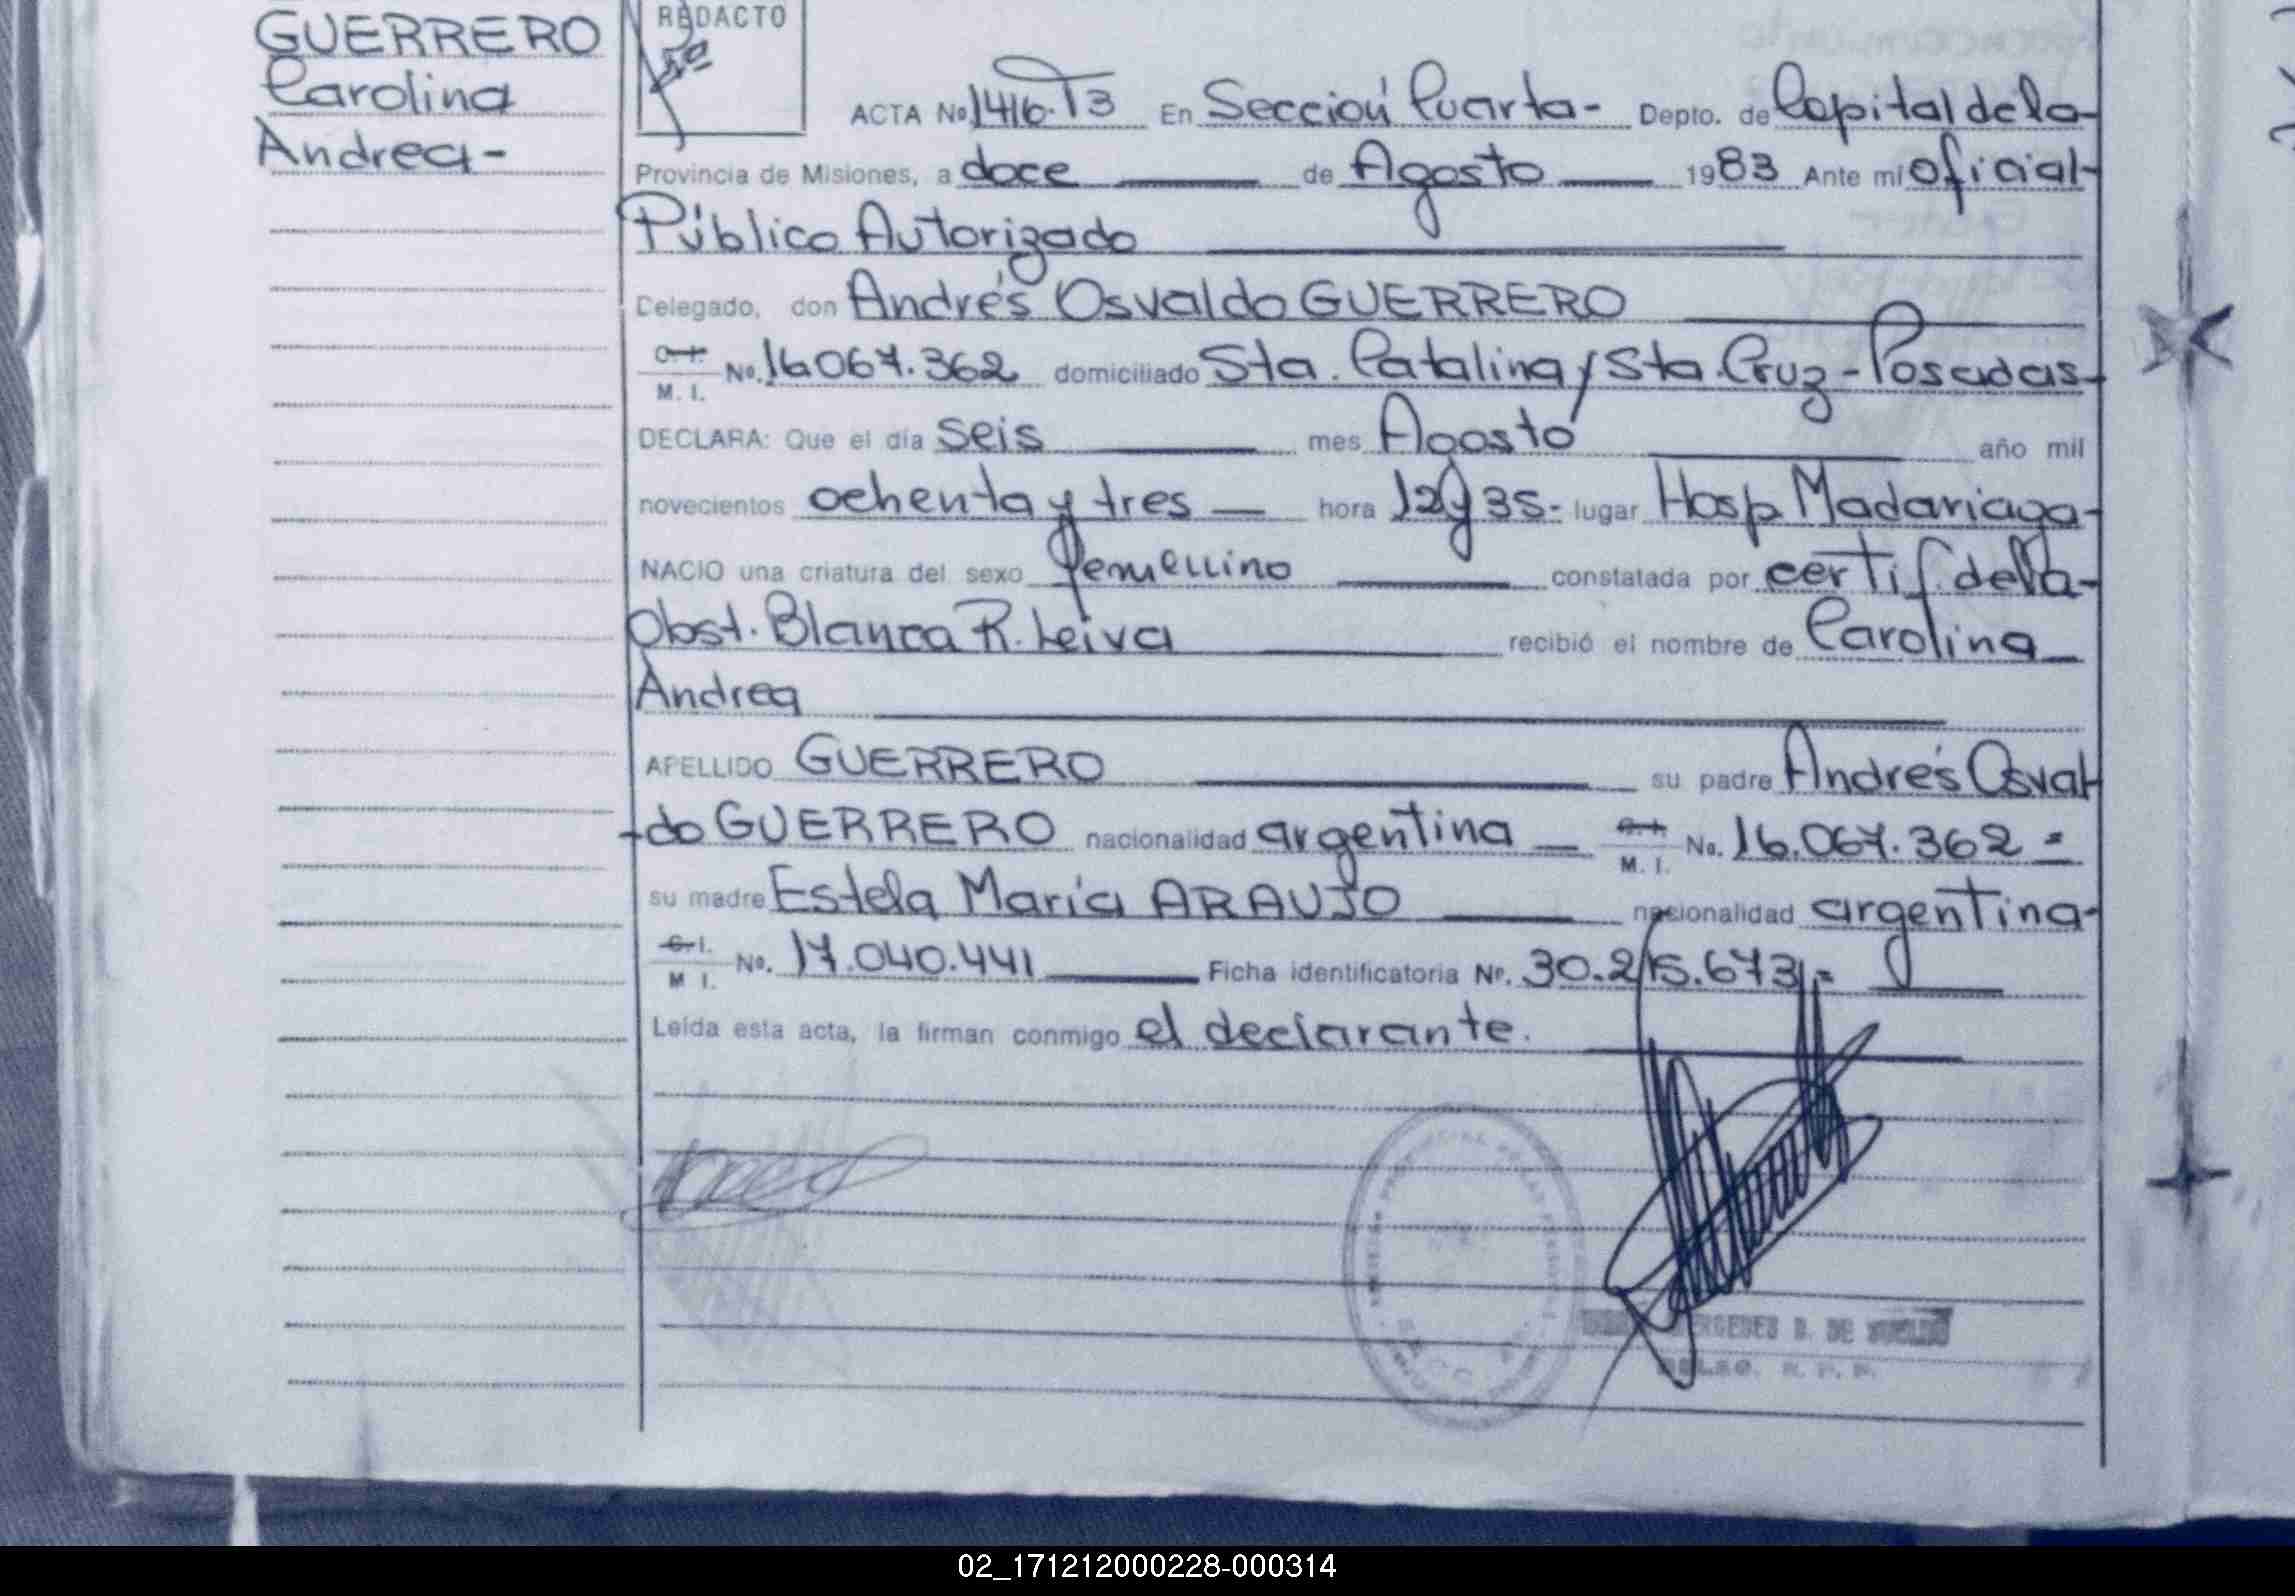 GUERRERO
Carolina
Andrea-
REDACTO
ACTA Nº 1416. T3 En Sección Cuarta- Depto. de Capital de la-
Provincia de Misiones, a doce de Agosto 1983 Ante mi oficial-
Público Autorizado
Delegado, don Andrés Osvaldo GUERRERO
M. I. Nº. 16.067.362 domiciliado Sta. Catalina y Sta. Cruz-Posadas-
DECLARA: Que el día seis mes Agosto año mil
novecientos ochenta y tres hora 12 y 35- lugar Hosp Madariaga-
NACIO una criatura del sexo femenino constatada por certif. de la-
Obst. Blanca R. Leiva recibió el nombre de Carolina
Andrea
APELLIDO GUERRERO su padre Andrés Osval-
-do GUERRERO nacionalidad argentina C.I. M. I. Nº. 16.067.362 =
su madre Estela María ARAUJO nacionalidad argentina-
C.I. M I. Nº. 17.040.441 Ficha identificatoria Nº. 30.215.673/=
Leída esta acta, la firman conmigo el declarante.
B. DE
02_171212000228-000314